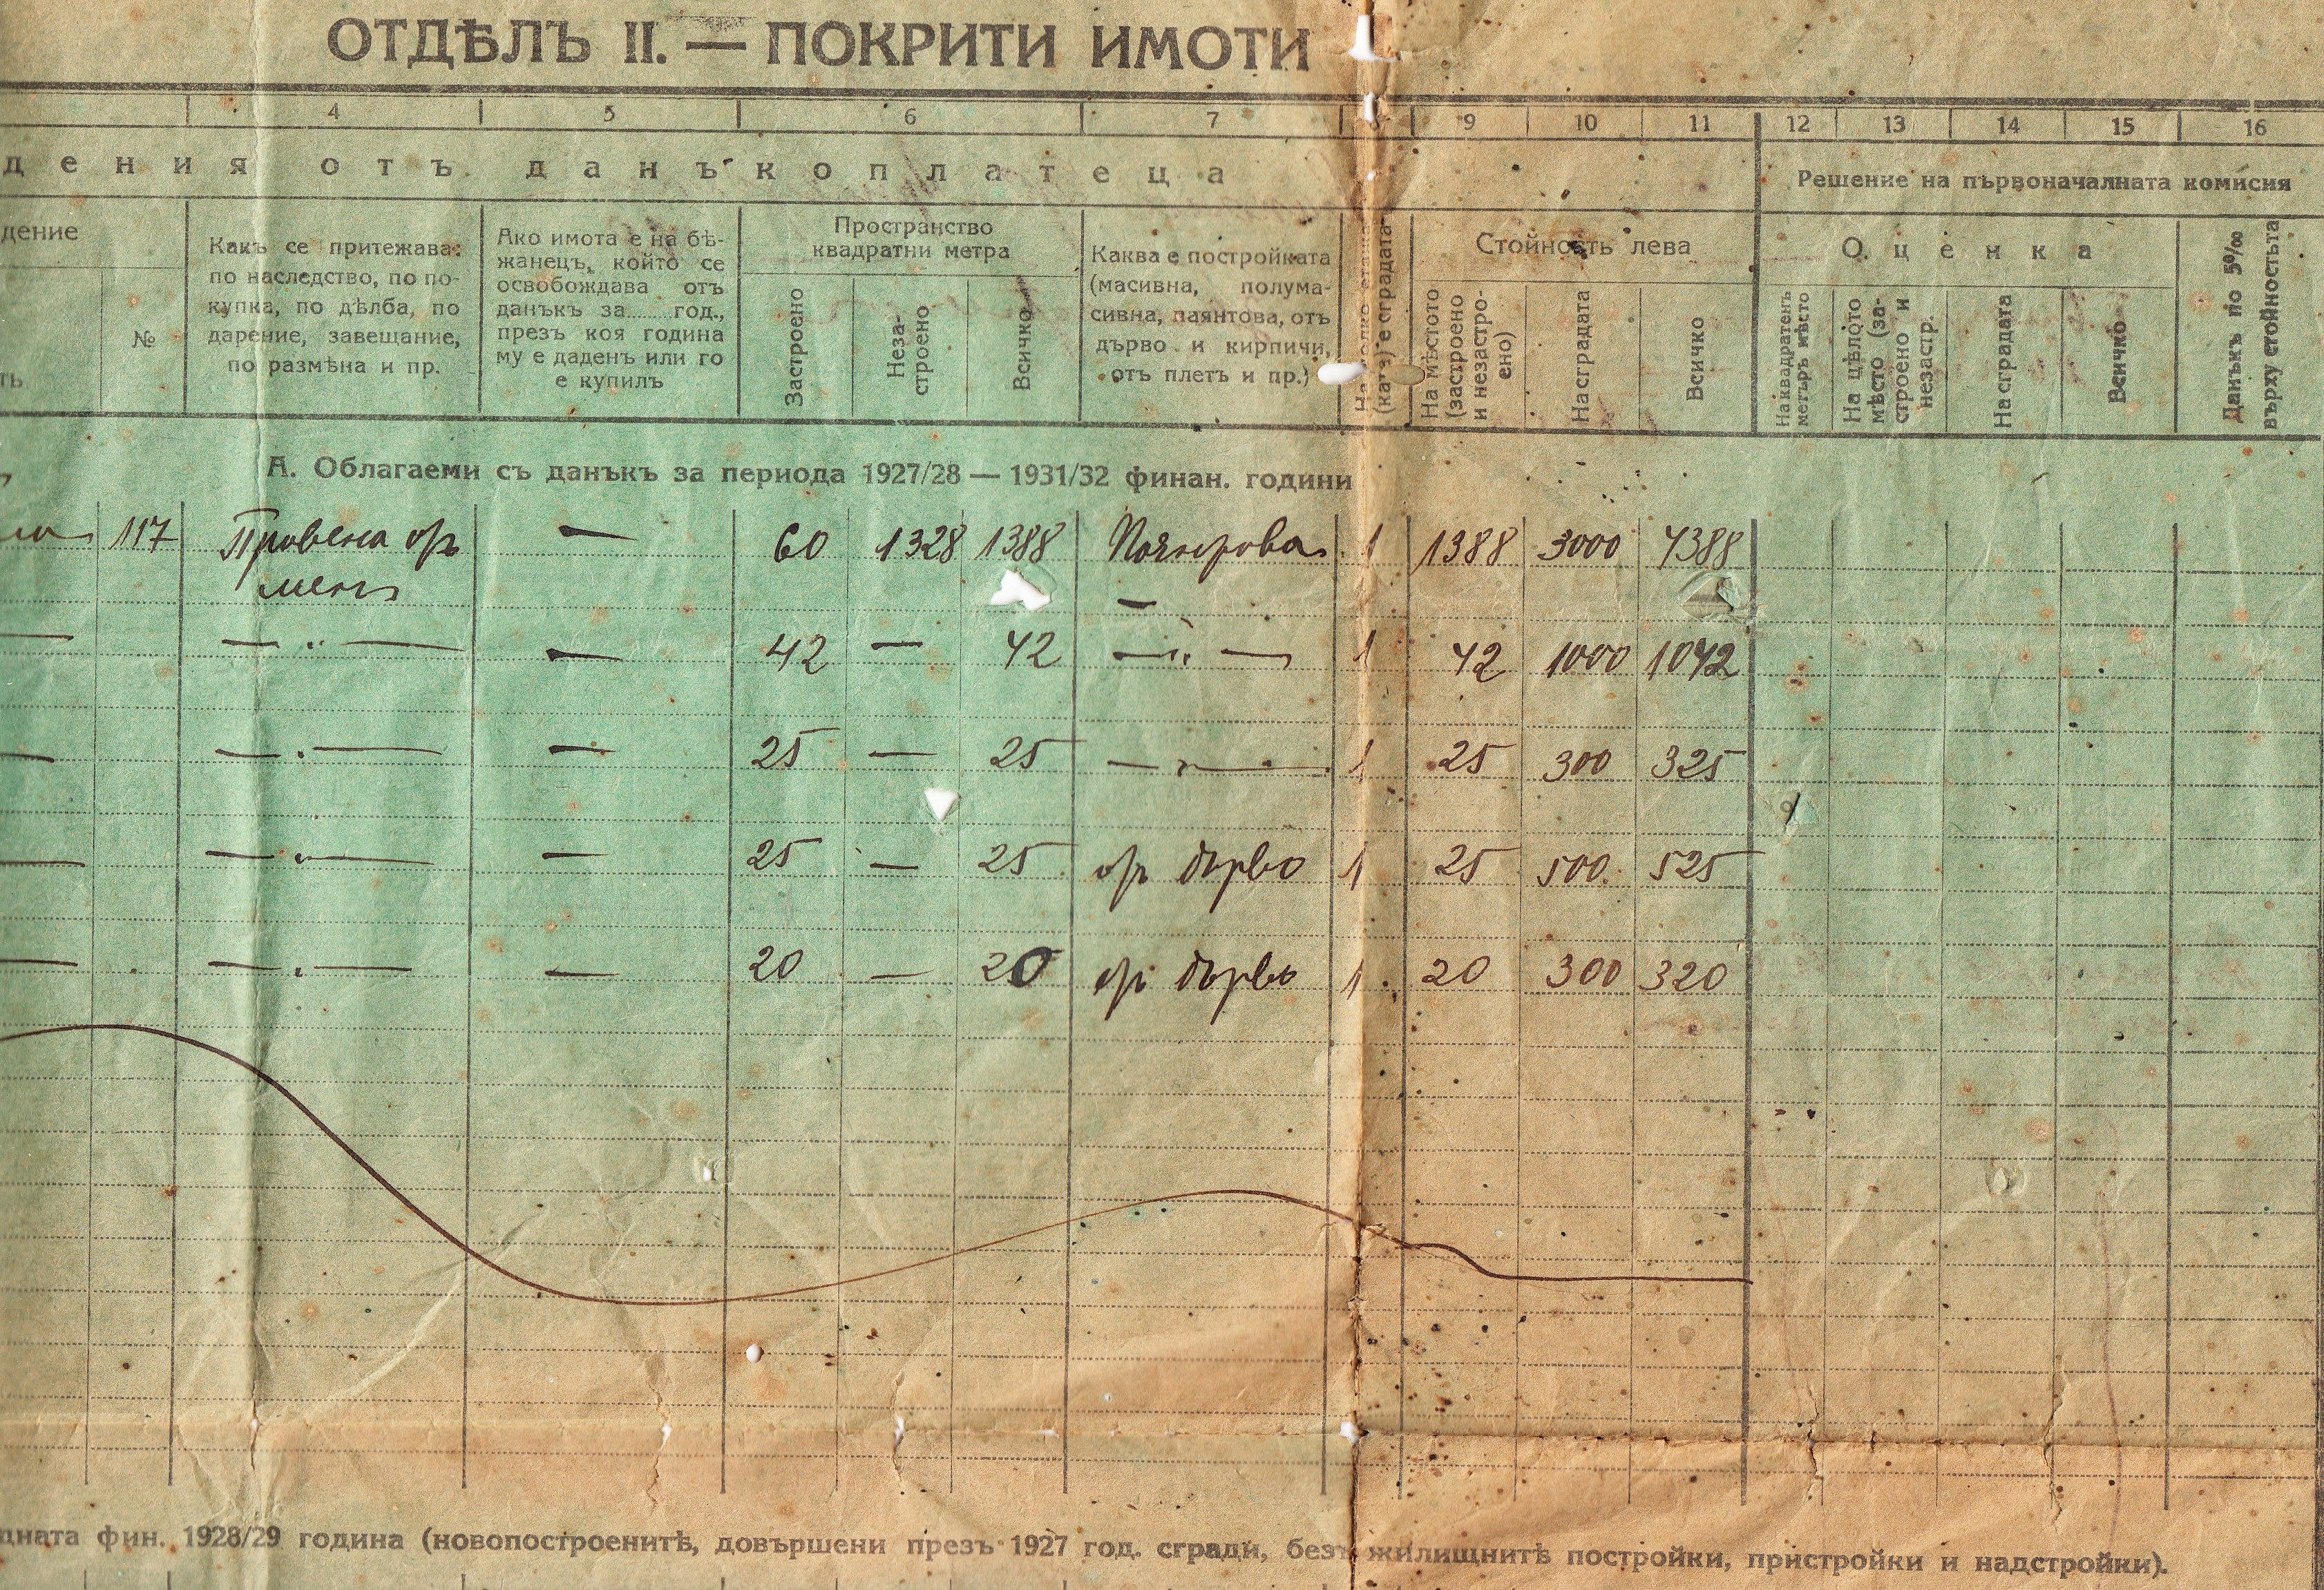 ОТДѢЛЪ II. — ПОКРИТИ ИМОТИ
4 5 6 7 8 9 10 11 12 13 14 15 16
дения отъ данъкоплатеца
Решение на първоначалната комисия
дение
№
ть
Какъ се притежава:
по наследство, по по-
купка, по дѣлба, по
дарение, завещание,
по размѣна и пр.
Ако имота е на бѣ-
жанецъ, който се
освобождава отъ
данъкъ за........год.,
презъ коя година
му е даденъ или го
е купилъ
Пространство
квадратни метра
Застроено
Неза-
строено
Всичко
Каква е постройката
(масивна, полума-
сивна, паянтова, отъ
дърво и кирпичи,
отъ плетъ и пр.)
На колко етажа
(ката) е сградата
Стойность лева
На мѣстото
(застроено
и незастро-
ено)
На сградата
Всичко
Оценка
На квадратенъ
метъръ мѣсто
На цѣлото
мѣсто (за-
строено и
незастр.
На сградата
Всичко
Данъкъ по 5‰
върху стойностьта
А. Облагаеми съ данъкъ за периода 1927/28 — 1931/32 финан. години
117 отъ — 60 1328 1388 Паянтова 1 1388 3000 4388
менъ —
— — „ — — 42 — 42 — „ — 1 42 1000 1042
— — „ — — 25 — 25 — „ — 1 25 300 325
— — „ — — 25 — 25 отъ дърво 1 25 500 525
— — „ — — 20 — 20 отъ дърво 1 20 300 320
дната фин. 1928/29 година (новопостроенитѣ, довършени презъ 1927 год. сгради, безъ жилищнитѣ постройки, пристройки и надстройки).